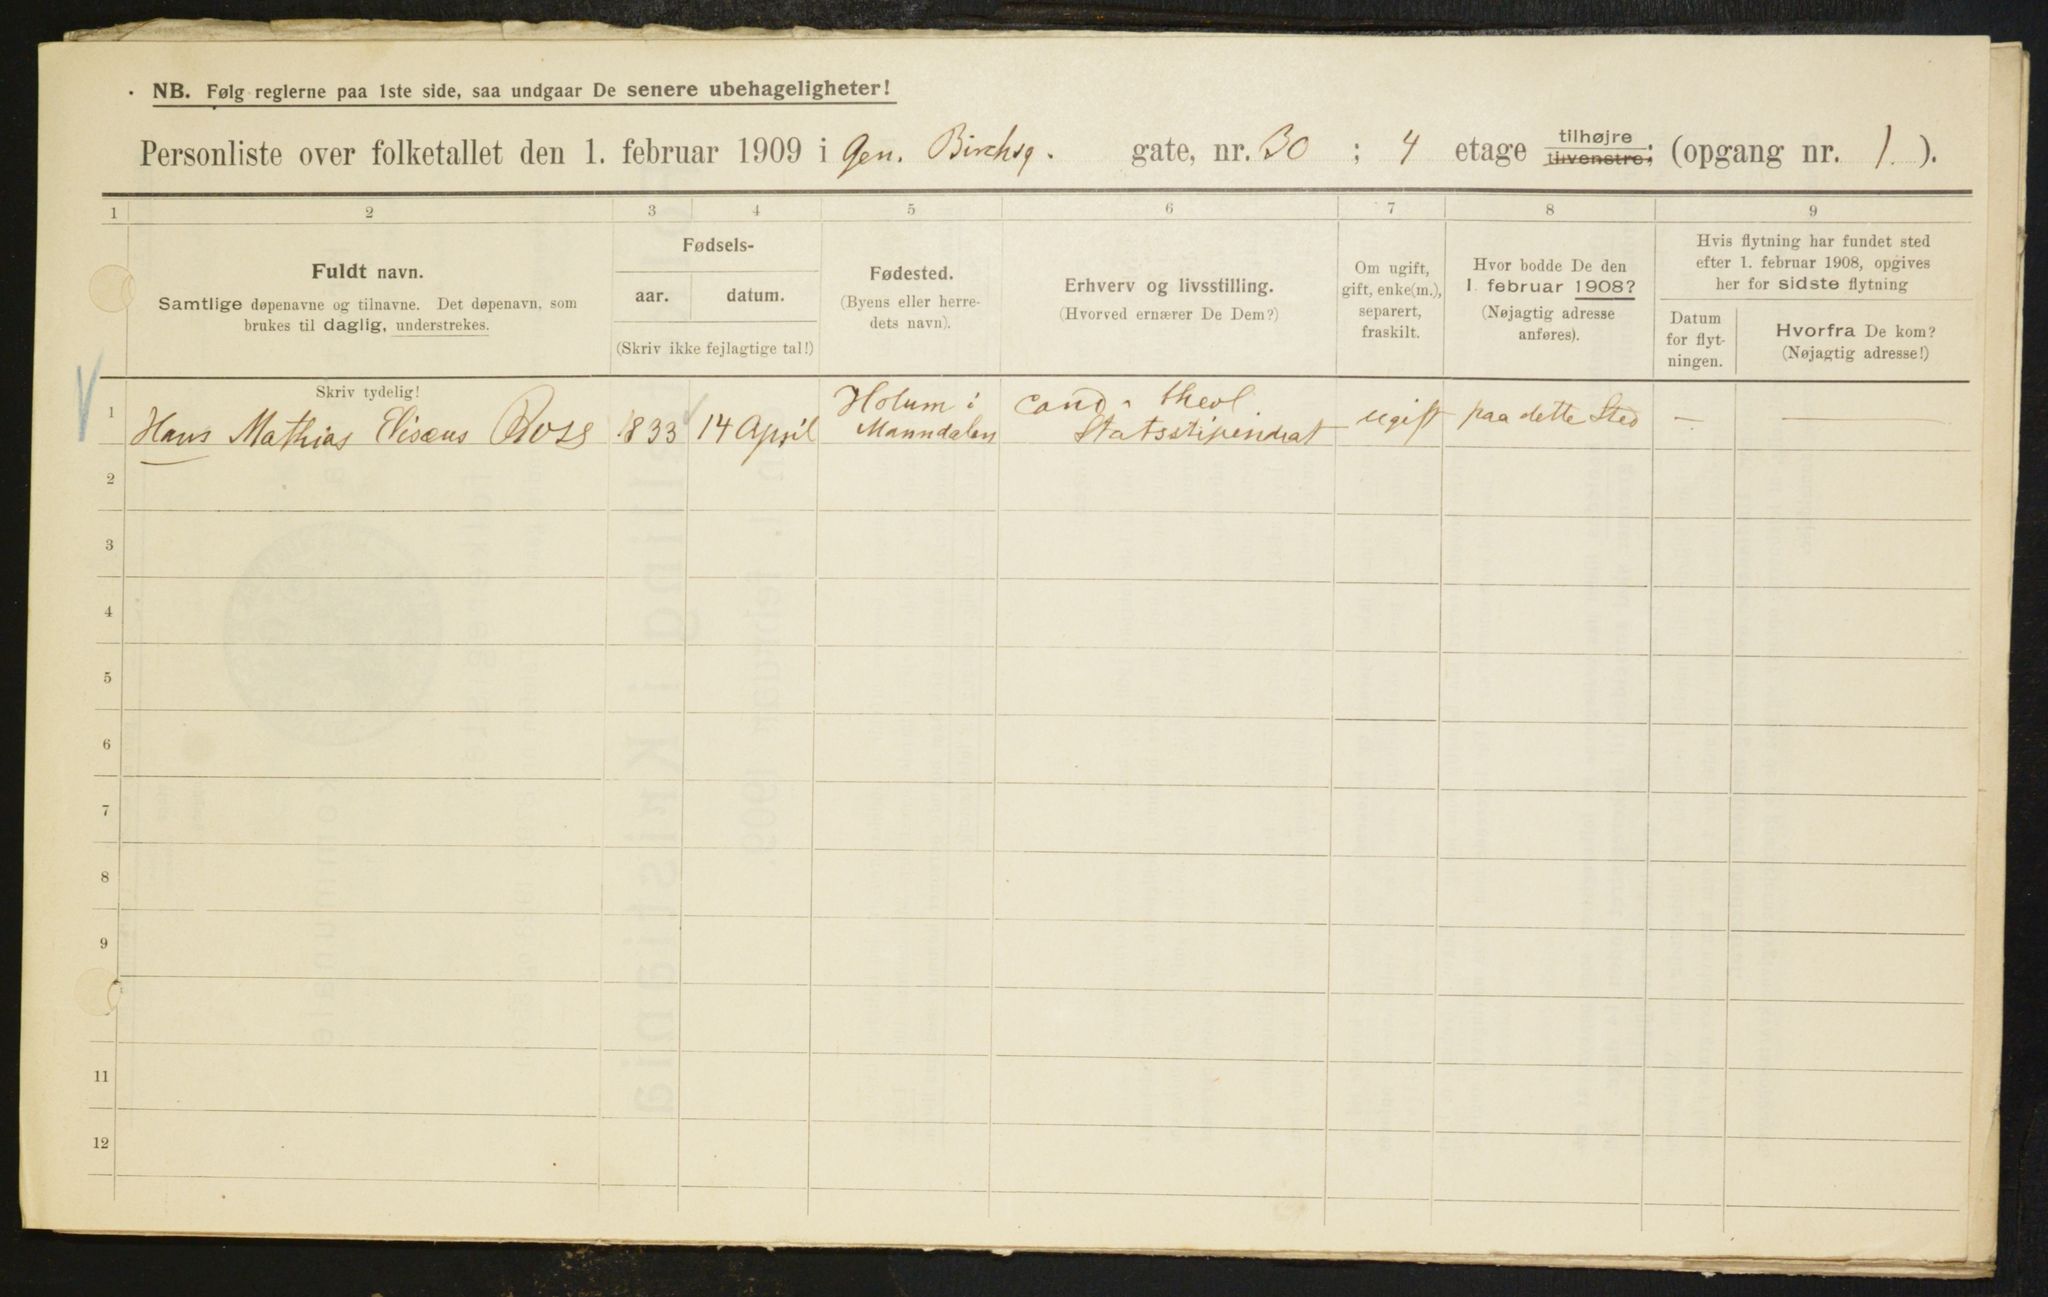 NB. Følg reglerne paa 1ste side, saa undgaar De senere ubehageligheter!
Personliste over folketallet den 1. februar 1909 i Gen. Birchsg. gate, nr. 30 ; 4 etage tilhøjre tilvenstre; (opgang nr. 1.).
1 2 3 4 5 6 7 8 9
Fuldt navn.
Samtlige døpenavne og tilnavne. Det døpenavn, som
brukes til daglig, understrekes.
Fødsels-
aar. datum.
(Skriv ikke fejlagtige tal!)
Fødested.
(Byens eller herre-
dets navn).
Erhverv og livsstilling.
(Hvorved ernærer De Dem?)
Om ugift,
gift, enke(m.),
separert,
fraskilt.
Hvor bodde De den
1. februar 1908?
(Nøjagtig adresse
anføres).
Hvis flytning har fundet sted
efter 1. februar 1908, opgives
her for sidste flytning
Datum
for flyt-
ningen.
Hvorfra De kom?
(Nøjagtig adresse!)
Skriv tydelig!
1 Hans Mathias Elisæus Ross 1833 14 April Holum i cand. theol. ugift paa dette Sted — —
Manndalen Statsstipendiat
2
3
4
5
6
7
8
9
11
12